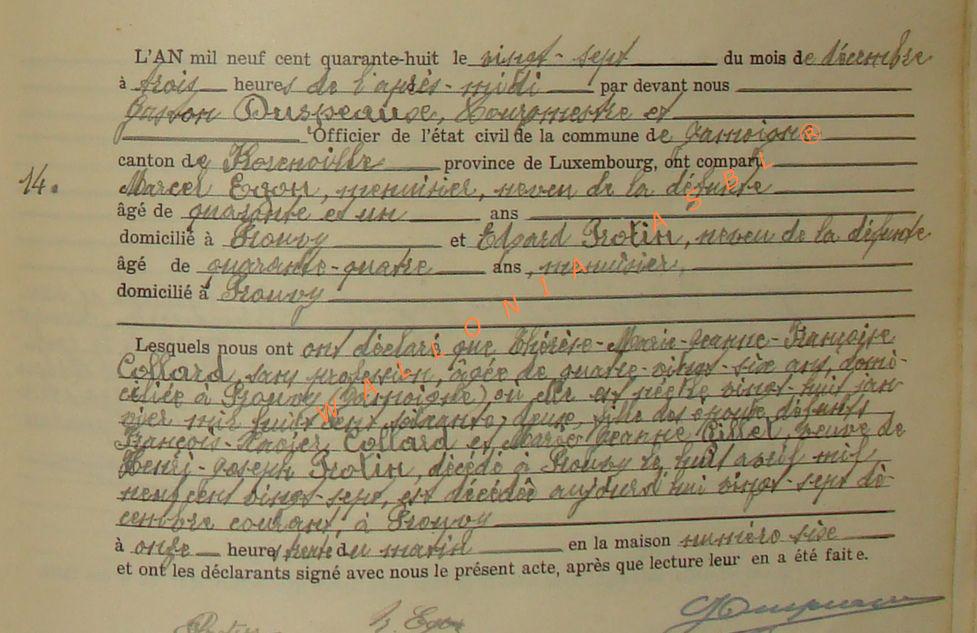 L'AN mil neuf cent quarante-huit le vingt-sept du mois de décembre
à trois heures de l'après-midi par devant nous
Gaston Duspeaux, Bourgmestre et
Officier de l'état civil de la commune de Jamoigne
canton de Florenville province de Luxembourg, ont comparu
14.
Marcel Egon, menuisier, neveu de la défunte
âgé de quarante et un ans
domicilié à Prouvy et Edgard Protin, neveu de la défunte
âgé de quarante-quatre ans, menuisier,
domicilié à Prouvy
Lesquels nous ont ont déclaré que Thérèse-Marie-Jeanne-Françoise
Collard, sans profession, âgée de quatre-vingt-six ans, domi-
ciliée à Prouvy (Jamoigne) où elle est née le vingt-huit jan
vier mil huit cent soixante-deux, fille des époux défunts
François-Xavier Collard et Marie-Jeanne Pillet, veuve de
Henri-Joseph Protin, décédé à Prouvy le huit avril mil
neuf cent vingt-sept, est décédée aujourd'hui vingt-sept dé-
cembre courant, à Prouvy
à onze heures trente du matin en la maison numéro six
et ont les déclarants signé avec nous le présent acte, après que lecture leur en a été faite.
Protin M. Egon
WALLONIA ASBL ®